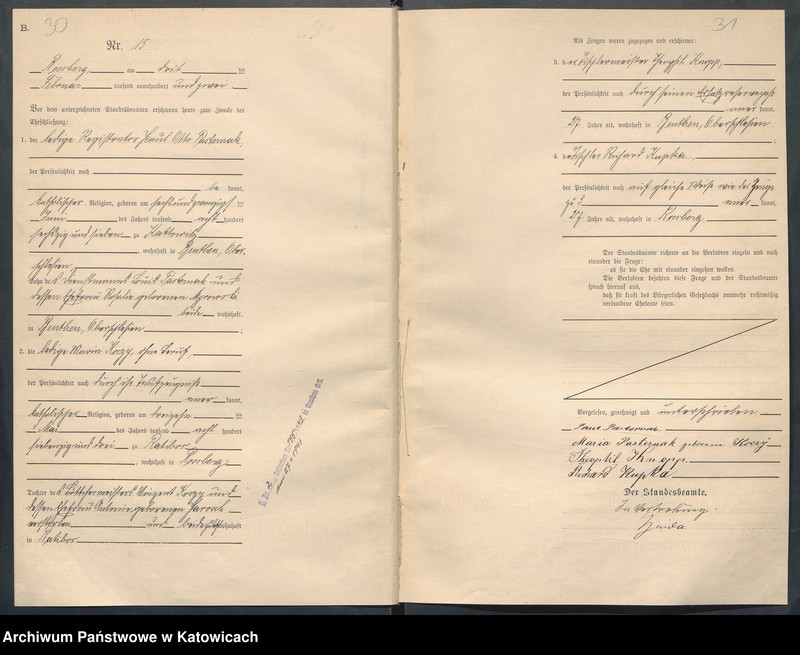 B.
30
Nr. 15
Rossberg, am dritten
Februar tausend neunhundert und zwei
Vor dem unterzeichneten Standesbeamten erschienen heute zum Zwecke der
Eheschließung:
1. der ledige Registrator Paul Otto Pasternak,
der Persönlichkeit nach
be kannt,
katholischer Religion, geboren am ten
Juni des Jahres tausend acht hundert
sechszig und sieben zu Kattowitz
, wohnhaft in Beuthen, Ober-
schlesien,
Sohn des und
dessen Ehefrau Rosalie geborenen
beide wohnhaft
in Beuthen, Oberschlesien ;
2. die ledige Maria Koczy, ohne Beruf,
der Persönlichkeit nach durch ihr Taufzeugniss
aner kannt,
katholischer Religion, geboren am dreizehn ten
Mai des Jahres tausend acht hundert
siebenzig und drei zu Ratibor
, wohnhaft in Rossberg,
Tochter des Böttchermeisters Vinzent Koczy und
dessen Ehefrau Antonie geborenen
verstorben und beide wohnhaft
in Ratibor
31
Als Zeugen waren zugezogen und erschienen:
3. der Tischlermeister Theophil Knopp,
der Persönlichkeit nach durch seinen
aner kannt,
27 Jahre alt, wohnhaft in Beuthen, Oberschlesien
;
4. der Tischler Richard Kupka,
der Persönlichkeit nach auf gleiche Weise wie der Zeuge
zu 3 aner kannt,
27 Jahre alt, wohnhaft in Rossberg
Der Standesbeamte richtete an die Verlobten einzeln und nach
einander die Frage:
ob sie die Ehe mit einander eingehen wollen.
Die Verlobten bejahten diese Frage und der Standesbeamte
sprach hierauf aus,
daß sie kraft des Bürgerlichen Gesetzbuchs nunmehr rechtmäßig
verbundene Eheleute seien.
Vorgelesen, genehmigt und unterschrieben
Paul Pasternak
Maria Pasternak geborene Koczy
Theophil Knopp.
Richard Kupka
Der Standesbeamte.
In Vertretung.
Archiwum Państwowe w Katowicach